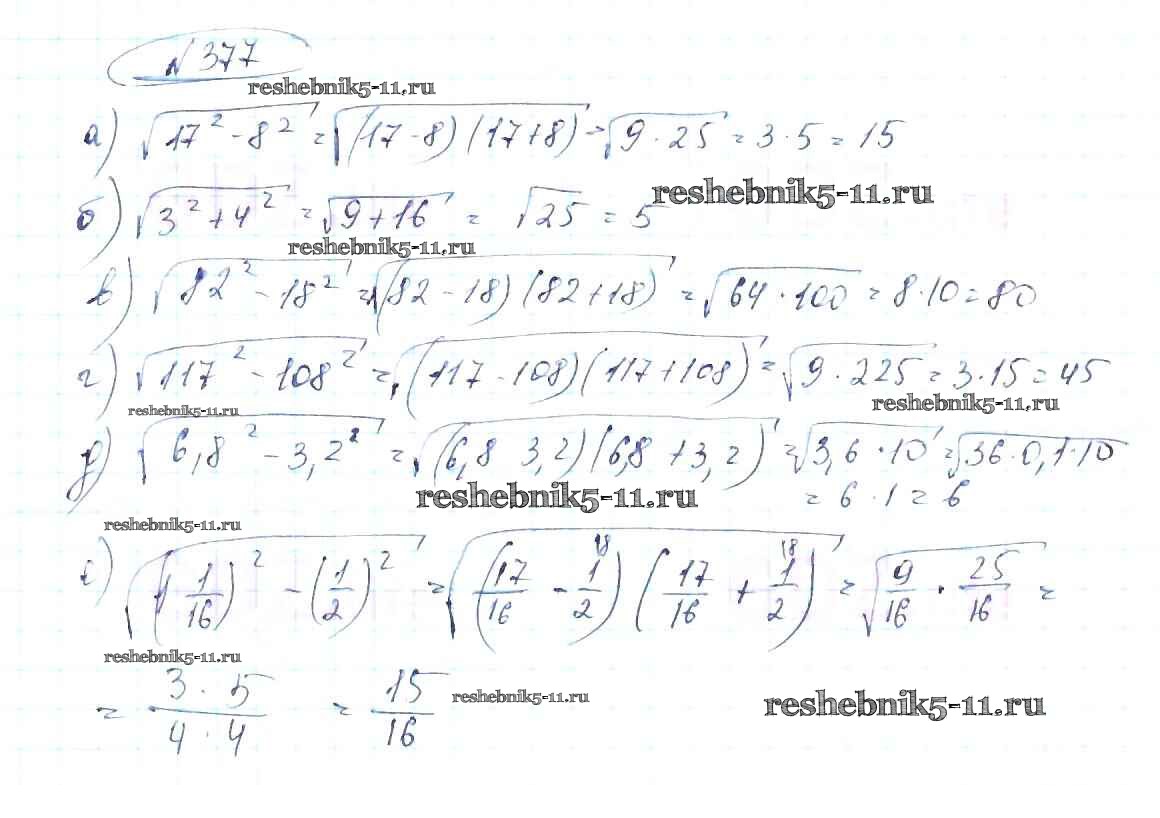 № 377
reshebnik5-11.ru
а) √(17² - 8²) = √((17-8)(17+8)) = √(9·25) = 3·5 = 15
б) √(3² + 4²) = √(9+16) = √25 = 5
reshebnik5-11.ru
reshebnik5-11.ru
в) √(82² - 18²) = √((82-18)(82+18)) = √(64·100) = 8·10 = 80
г) √(117² - 108²) = √((117-108)(117+108)) = √(9·225) = 3·15 = 45
reshebnik5-11.ru
reshebnik5-11.ru
д) √(6,8² - 3,2²) = √((6,8 3,2)(6,8 + 3,2)) = √(3,6·10) = √(36·0,1·10)
= 6·1 = 6
reshebnik5-11.ru
reshebnik5-11.ru
е) √((1 1/16)² - (1/2)²) = √((17/16 - 1/2 \8)(17/16 + 1/2 \8)) = √(9/16 · 25/16) =
reshebnik5-11.ru
= 3·5/4·4 = 15/16
reshebnik5-11.ru
reshebnik5-11.ru